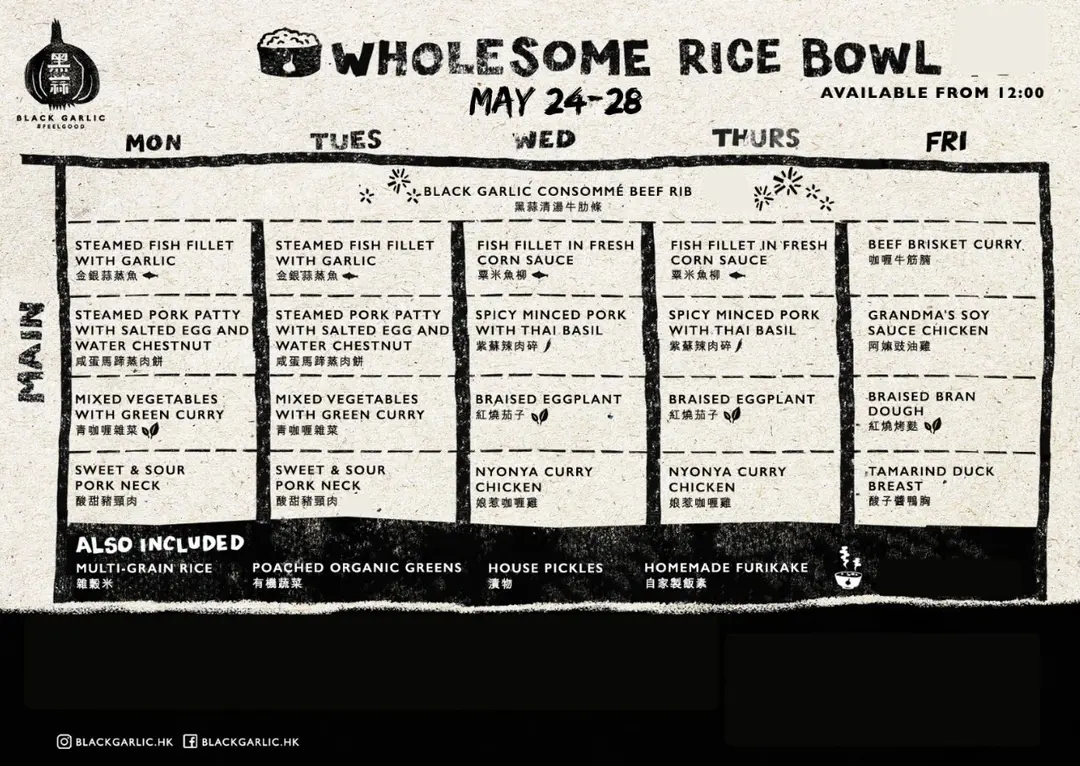 黑蒜
BLACK GARLIC
#FEELGOOD
WHOLESOME RICE BOWL
MAY 24-28
AVAILABLE FROM 12:00
MON
TUES
WED
THURS
FRI
MAIN
BLACK GARLIC CONSOMMÉ BEEF RIB
黑蒜清湯牛肋條
STEAMED FISH FILLET
WITH GARLIC
金銀蒜蒸魚
STEAMED FISH FILLET
WITH GARLIC
金銀蒜蒸魚
FISH FILLET IN FRESH
CORN SAUCE
粟米魚柳
FISH FILLET IN FRESH
CORN SAUCE
粟米魚柳
BEEF BRISKET CURRY
咖喱牛筋腩
STEAMED PORK PATTY
WITH SALTED EGG AND
WATER CHESTNUT
咸蛋馬蹄蒸肉餅
STEAMED PORK PATTY
WITH SALTED EGG AND
WATER CHESTNUT
咸蛋馬蹄蒸肉餅
SPICY MINCED PORK
WITH THAI BASIL
紫蘇辣肉碎
SPICY MINCED PORK
WITH THAI BASIL
紫蘇辣肉碎
GRANDMA'S SOY
SAUCE CHICKEN
阿嫲豉油雞
MIXED VEGETABLES
WITH GREEN CURRY
青咖喱雜菜
MIXED VEGETABLES
WITH GREEN CURRY
青咖喱雜菜
BRAISED EGGPLANT
紅燒茄子
BRAISED EGGPLANT
紅燒茄子
BRAISED BRAN
DOUGH
紅燒烤麩
SWEET & SOUR
PORK NECK
酸甜豬頸肉
SWEET & SOUR
PORK NECK
酸甜豬頸肉
NYONYA CURRY
CHICKEN
娘惹咖喱雞
NYONYA CURRY
CHICKEN
娘惹咖喱雞
TAMARIND DUCK
BREAST
酸子醬鴨胸
ALSO INCLUDED
MULTI-GRAIN RICE
雜穀米
POACHED ORGANIC GREENS
有機蔬菜
HOUSE PICKLES
漬物
HOMEMADE FURIKAKE
自家製飯素
BLACKGARLIC.HK
BLACKGARLIC.HK